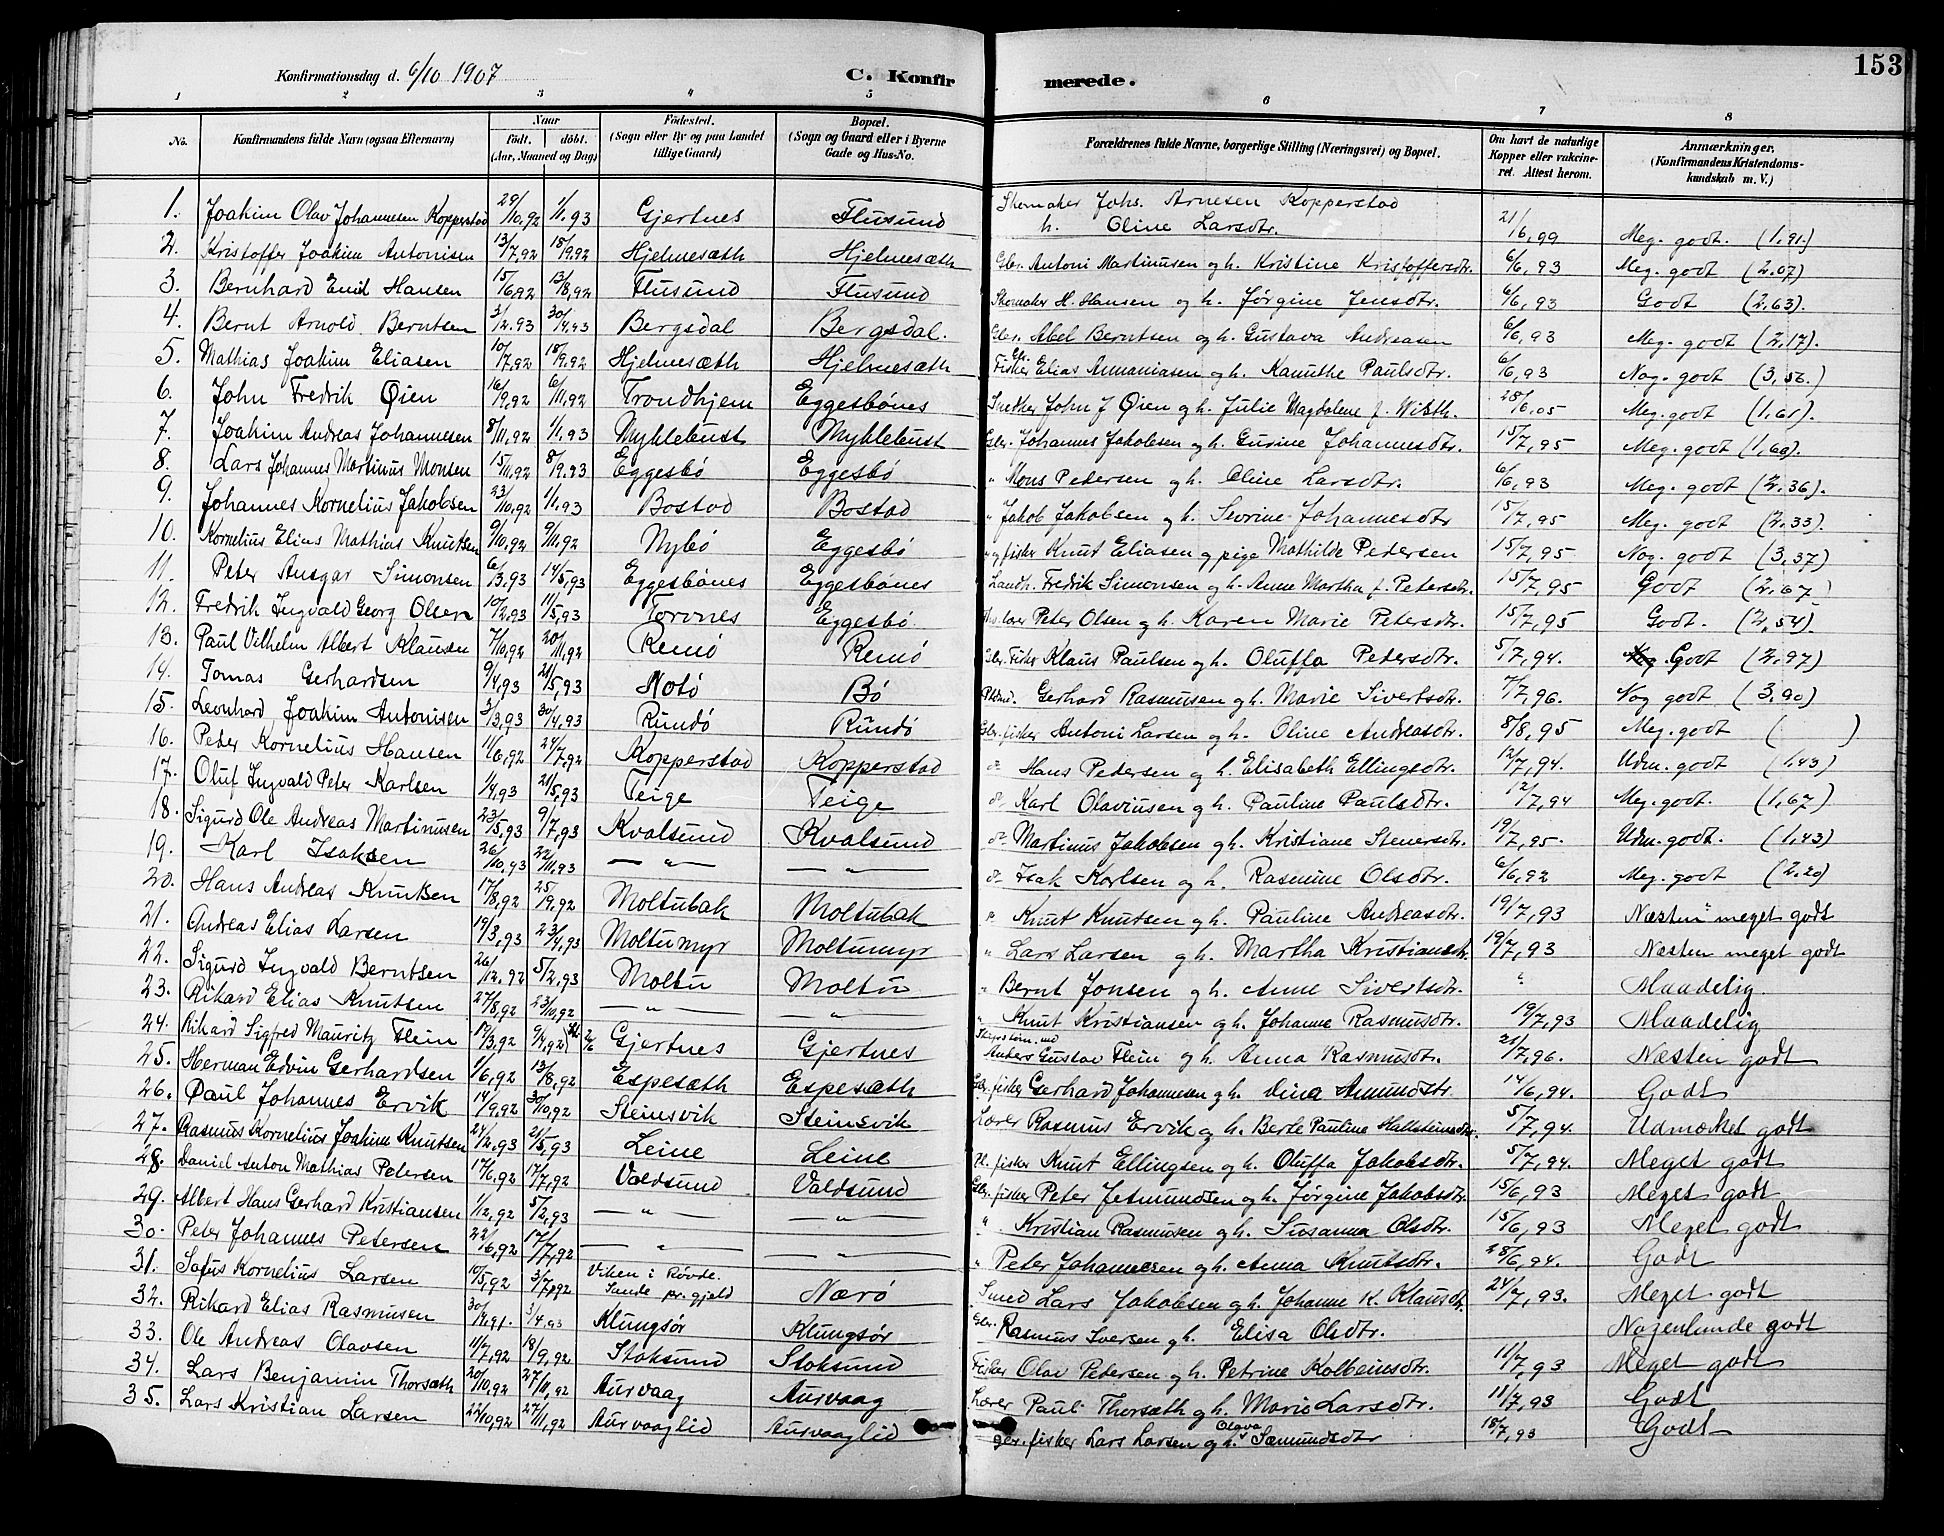 153
Konfirmationsdag d. 6/10 1907 C. Konfirmerede.
1 2 3 4 5 6 7 8
No. Konfirmandens fulde Navn (ogsaa Efternavn) Naar Født. døbt. (Aar, Maaned og Dag) Fødested. (Sogn eller By og paa Landet tillige Gaard) Bopæl. (Sogn og Gaard eller i Byerne Gade og Hus-No. Forældrenes fulde Navne, borgerlige Stilling (Næringsvei) og Bopæl. Om havt de naturlige Kopper eller vakcineret. Attest herom. Anmærkninger. (Konfirmandens Kristendomskundskab m. V.)
1. Joakim Olav Johannesen Kopperstad 29/10,92 1/1,93 Gjertnes Flusund Skomaker Johs. Arnesen Kopperstad
h. Oline Larsdtr. 21/6,99 Meg. godt. (1,91.)
2. Kristoffer Joakim Antonisen 13/7,92 18/9,92 Hjelmesæth Hjelmesæth Gbr. Antoni Martinusen og h. Kristine Kristoffersdtr. 6/6,93 Meg. godt (2,07)
3. Bernhard Emil Hansen 15/6,92 13/8,92 Flusund Flusund Skomaker H. Hansen og h. Jørgine Jensdtr. 6/6,93 Godt (2,63).
4. Bernt Arnold Berntsen 3/12.93 30/4,93 Bergsdal Bergsdal. Gbr. Abel Berntsen og h. Gustava Andreasen 6/6,93 Meg. godt (2,17).
5. Mathias Joakim Eliasen 10/7,92 18/9,92 Hjelmesæth Hjelmesæth Fisker Elias Annaniasen og h. Kanuthe Paulsdtr. 6/6,93 Nog. godt (3,56.)
6. John Fredrik Øien 16/9,92 6/11,92 Trondhjem Eggesbønes Snedker John J Øien og h. Julie Magdalene f. Wikth. 28/6,05 Meg. godt (1,61).
7. Joakim Andreas Johannesen 8/11,92 1/1,93 Myklebust Myklebust Gbr. Johannes Jakobsen og h. Gurine Johannesdtr. 15/7,95 Meg. godt (1,60).
8. Lars Johannes Martinus Monsen 15/11,92 8/9.93 Eggesbø Eggesbø " Mons Pedersen og h. Oline Larsdtr. 6/6,93 Meg. godt (2,36).
9. Johannes Kornelius Jakobsen 23/10,92 1/1,93 Bostad Bostad " Jakob Jakobsen og h. Sevrine Johannesdtr 15/7,95 Meg. godt (2,33).
10. Kornelius Elias Mathias Knutsen 9/10,92 9/11,92 Nybø Eggesbø " og fisker Knut Eliasen og pige Mathilde Pedersen 15/7,95 Nog. godt (3,37)
11. Peter Ansgar Simonsen 6/3,93 14/5,93 Eggesbønes Eggesbønes Landh. Fredrik Simonsen og h. Anne Martha f. Petersdtr. 15/7,95 Godt (2,67)
12. Fredrik Ingvald Georg Olsen 10/2,93 11/5,93 Torvnes Eggesbø Peter Olsen og h. Karen Marie Petersdtr. 15/7,95 Godt. (2,54).
13. Paul Vilhelm Albert Klausen 7/10,92 20/11,92 Remø Remø Gbr. Fisker Klaus Paulsen og h. Oluffa Pedersdtr. 5/7,94. Godt (2,97)
14. Tomas Gerhardsen 9/4,93 21/5,93 Notø Bø Gerhard Rasmusen og h. Marie Sivertsdtr. 7/7,96. Nog godt (3,90)
15. Leonhard Joakim Antonisen 3/3,93 30/4,93 Rundø Rundø Gbr. fisker Antoni Larsen og h. Oline Andreasdtr. 8/8,95 Meg. godt ( )
16. Peter Kornelius Hansen 11/6,92 24/7,92 Kopperstad Kopperstad do Hans Pedersen og h. Elisabeth Ellingsdtr. 12/7,94. Udm. godt (1,43)
17. Oluf Ingvald Peter Karlsen 1/4,93 21/5,93 Teige Teige do Karl Olaviusen og h. Pauline Paulsdtr. 12/7,94 Meg. godt. (1,67)
18. Sigurd Ole Andreas Martinusen 23/5,93 9/7,93 Kvalsund Kvalsund do Martinus Jakobsen og h. Kristiane Stenersdtr. 19/7,95. Udm. godt. (1,43)
19. Karl Isaksen 26/10,93 22/11,93 — " — — " — do Isak Karlsen og h. Rasmine Olsdtr. 6/6,92 Meg. godt (2,20)
20. Hans Andreas Knutsen 17/8,92 25/9,92 Moltubak Moltubak " Knut Knutsen og h. Pauline Andreasdtr. 19/7,93 Næsten meget godt
21. Andreas Elias Larsen 19/3,93 23/4,93 Moltumyr Moltumyr " Lars Larsen og h. Martha Kristiansdtr. 19/7,93 Næsten meget godt
22. Sigurd Ingvald Berntsen 26/12.92 5/2,93 Moltu Moltu " Bernt Jonsen og h. Anne Sivertsdtr. " Maadelig
23. Rikard Elias Knutsen 27/8,92 23/10,92 — " — — " — " Knut Kristiansen og h. Johanne Rasmusdtr. 19/7,93 Maadelig
24. Rikard Sigfred Mauritz Flein 17/3,92 9/4,92 Gjertnes Gjertnes Anders Gustav Flein og h. Anna Rasmusdtr. 21/7,96. Næsten godt
25. Herman Edvin Gerhardsen 1/6,92 13/8,92 Espesæth Espesæth Gbr. fisker Gerhard Johannesen og h. Lina Amundsdtr. 14/6,94. Godt
26. Paul Johannes Ervik 14/9,92 30/10,92 Steinsvik Steinsvik Lærer Rasmus Ervik og h. Berte Pauline Hallsteinsdtr. 5/7,94. Udmerket godt
27. Rasmus Kornelius Joakim Knutsen 24/2,93 21/5,93 Leine Leine Pl. fisker Knut Ellingsen og h. Oluffa Jakobsdtr. 5/7,94. Meget godt
28. Daniel Anton Mathias Petersen 17/6,92 17/7,92 Voldsund Voldsund Gbr. fisker Peter Jetmundsen og h. Jørgine Jakobsdtr. 15/6,93 Meget godt
29. Albert Hans Gerhard Kristiansen 1/12,92 5/2,93 — " — — " — " Kristian Rasmusen og h. Susanna Olsdtr. 15/6,93 Meget godt
30. Peter Johannes Petersen 22/6,92 17/7,92 — " — — " — " Peter Johannesen og h. Anna Knutsdtr. 28/6,94. Godt
31. Sofus Kornelius Larsen 10/5,92 3/7,92 Viken i Røvde. Sande pr.gjeld Nærø Smed Lars Jakobsen og h. Johanne K. Klausdtr. 24/7,93. Meget godt
32. Rikard Elias Rasmusen 30/4,91. 3/4,93 Klungsør Klungsør Gbr. Rasmus Iversen og h. Elisa Olsdtr. Nogenlunde godt
33. Ole Andreas Olavsen 11/7,92 18/9,92 Stoksund Stoksund Fisker Olav Pedersen og h. Petrine Kolbeinsdtr. 11/7,93 Meget godt
34. Lars Benjamin Thorsæth 20/10,92 27/11,92 Aurvaag Aurvaag Lærer Paul Thorsæth og h. Marie Larsdtr. 11/7,93 Godt
35. Lars Kristian Larsen 22/10,92 27/11,92 Aurvaaglid Aurvaaglid gbr. fisker Lars Larsen og h. Olava Sæmundsdtr 18/7,93 Godt